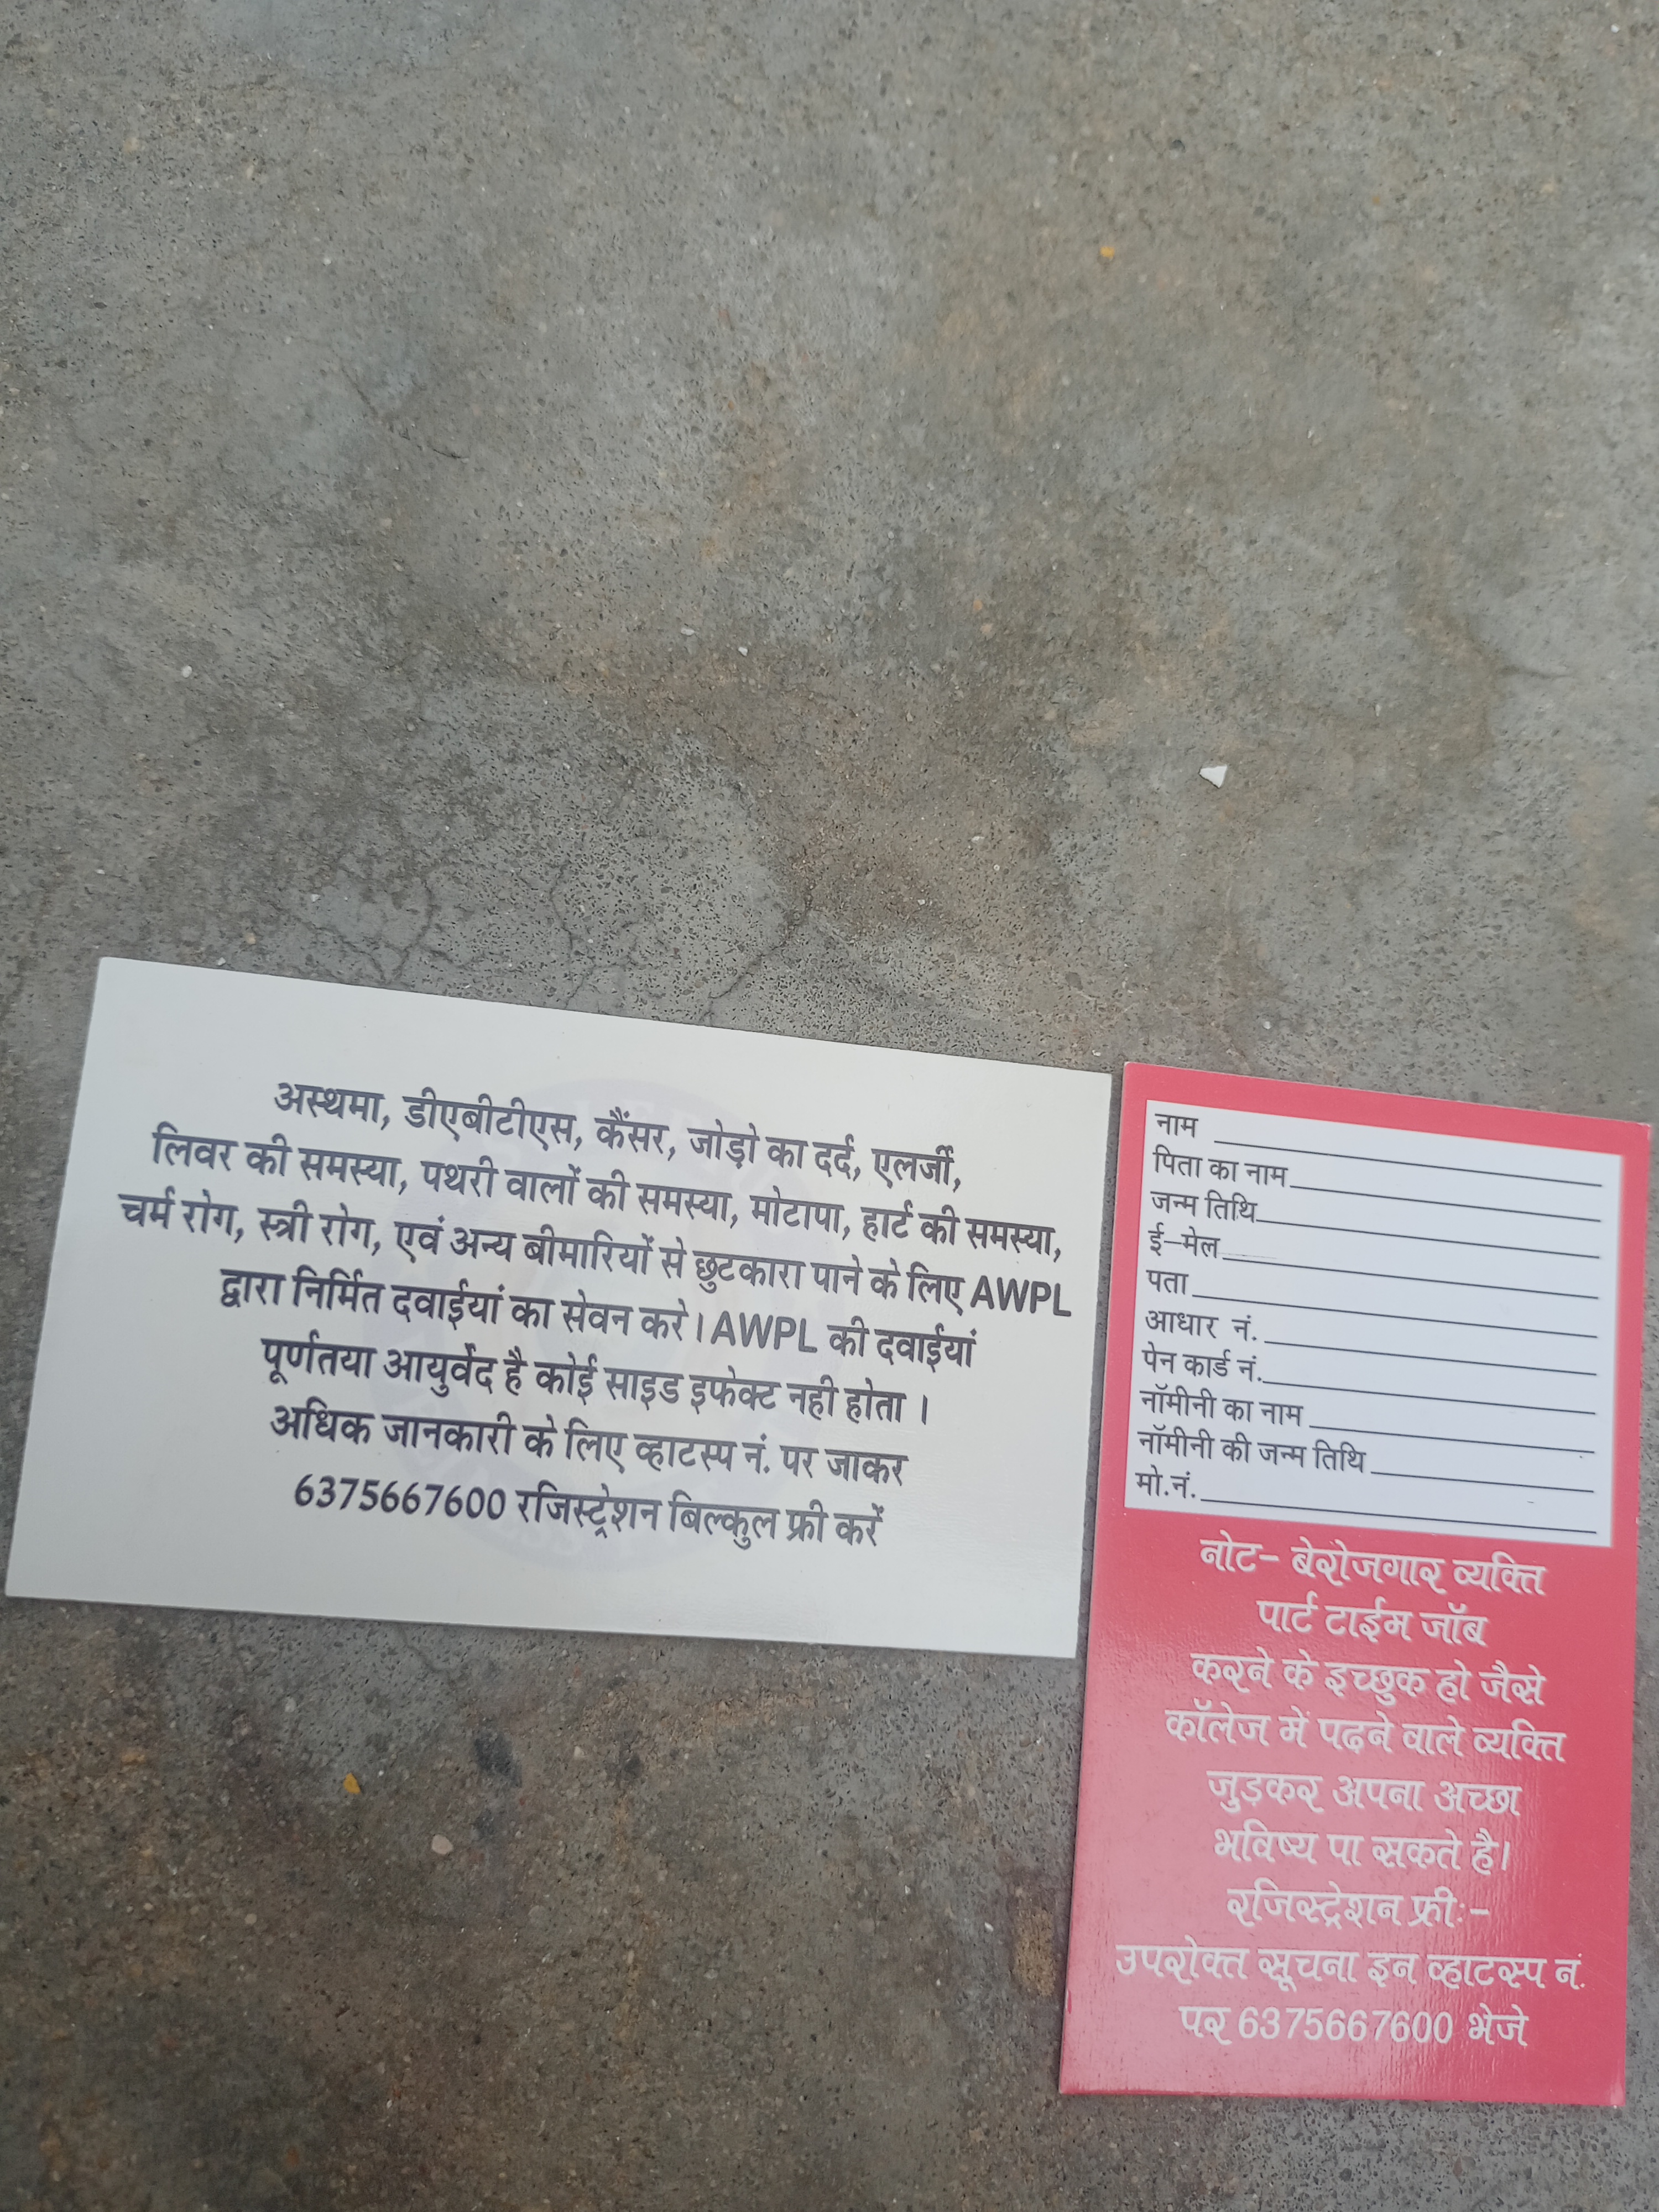 अस्थमा, डीएबीटीएस, कैंसर, जोड़ो का दर्द, एलर्जी,
लिवर की समस्या, पथरी वालों की समस्या, मोटापा, हार्ट की समस्या,
चर्म रोग, स्त्री रोग, एवं अन्य बीमारियों से छुटकारा पाने के लिए AWPL
द्वारा निर्मित दवाईयां का सेवन करे। AWPL की दवाईयां
पूर्णतया आयुर्वेद है कोई साइड इफेक्ट नही होता ।
अधिक जानकारी के लिए व्हाटस्प नं. पर जाकर
6375667600 रजिस्ट्रेशन बिल्कुल फ्री करें
नाम
पिता का नाम
जन्म तिथि
ई-मेल
पता
आधार नं.
पेन कार्ड नं.
नॉमीनी का नाम
नॉमीनी की जन्म तिथि
मो.नं.
नोट- बेरोजगार व्यक्ति
पार्ट टाईम जॉब
करने के इच्छुक हो जैसे
कॉलेज में पढने वाले व्यक्ति
जुड़कर अपना अच्छा
भविष्य पा सकते है।
रजिस्ट्रेशन फ्री:-
उपरोक्त सूचना इन व्हाटस्प नं.
पर 6375667600 भेजे